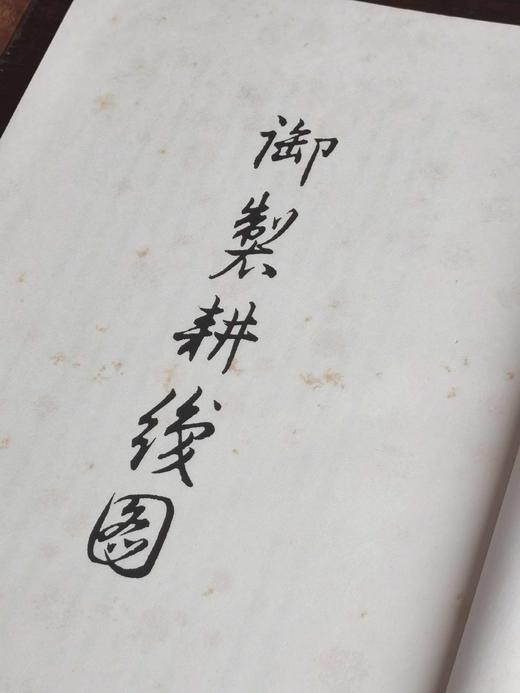 御製耕織图